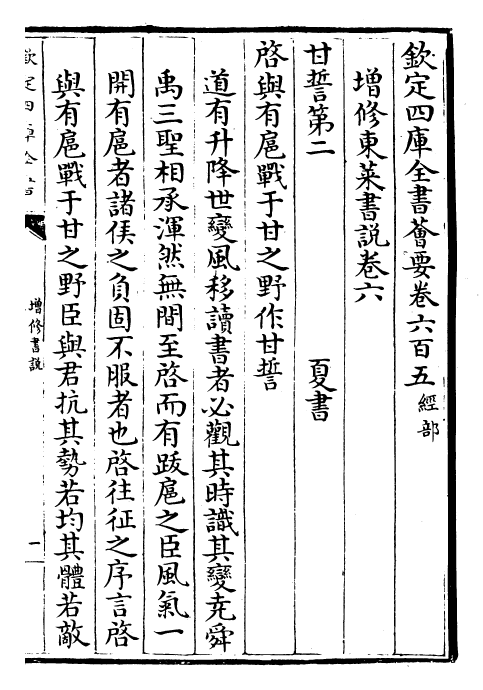 欽定四庫全書薈要卷六百五 經部
增修東萊書說卷六
甘誓第二 夏書
啓與有扈戰于甘之野作甘誓
道有升降世變風移讀書者必觀其時識其變堯舜
禹三聖相承渾然無間至啓而有跋扈之臣風氣一
開有扈者諸侯之負固不服者也啓往征之序言啓
與有扈戰于甘之野臣與君抗其勢若均其體若敵
欽定四庫全書
增修書說
一